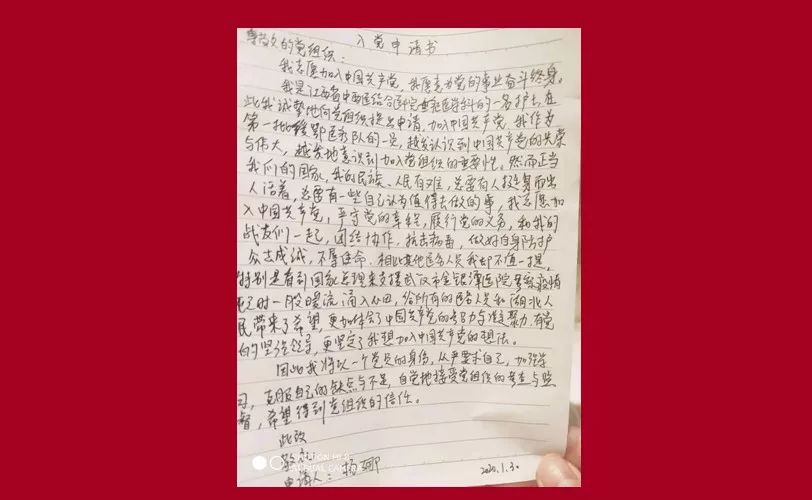 入党申请书
尊敬的党组织:
我志愿加入中国共产党,我愿意为党的事业奋斗终身。
我是江西省中西医结合医院重症医学科的一名护士,在
此我诚挚地向党组织提出申请,加入中国共产党,我作为
第一批援鄂医疗队的一员,越发认识到中国共产党的光荣
与伟大,越发地意识到加入党组织的重要性。然而正当
我们的国家,我的民族、人民有难,总要有人挺身而出
人活着,总要有一些自己认为值得去做的事,我志愿加
入中国共产党,严守党的章程,履行党的义务,和我的
战友们一起,团结协作,抗击病毒,做好自身防护
众志成城,不辱使命,相比其他医务人员我却不值一提,
特别是看到国家总理来支援武汉市金银潭医院
时一股暖流涌入心田,给所有的医务人员和湖北人
民带来了希望,更加体会了中国共产党的号召力与凝聚力,有党
的坚强领导,更坚定了我想加入中国共产党的想法。
因此我将以一个党员的身份,从严要求自己,加强学
习,克服自己的缺点与不足,自觉地接受党组织的考查与监
督,希望得到党组织的信任。
此致
敬礼
申请人:
2020.1.30